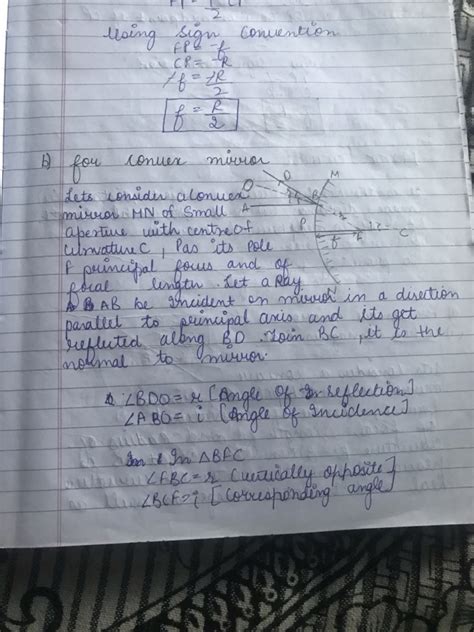 2
Using sign convention
FP = -f
CP = -R
-f = -R
2
f = R
2
b) for convex mirror
Lets consider a convex
mirror MN of small
aperture with centre of
curvature C, P as its pole
F principal focus and of
focal length. Let a Ray
AB be Incident on mirror in a direction
parallel to principal axis and its get
reflected along BD. Join BC, it is the
normal to mirror.
∠BDO = r [Angle of reflection]
∠ABO = i [Angle of Incidence]
In ΔBFC
∠FBC = r [vertically opposite]
∠BCF = i [corresponding angle]
D
M
O
A
B
P
F
C
N